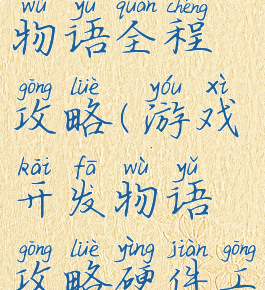 wù yǔ quán chéng
物语全程
gōng lüè yóu xì
攻略(游戏
kāi fā wù yǔ
开发物语
gōng lüè yìng jiàn gōng
攻略硬件工